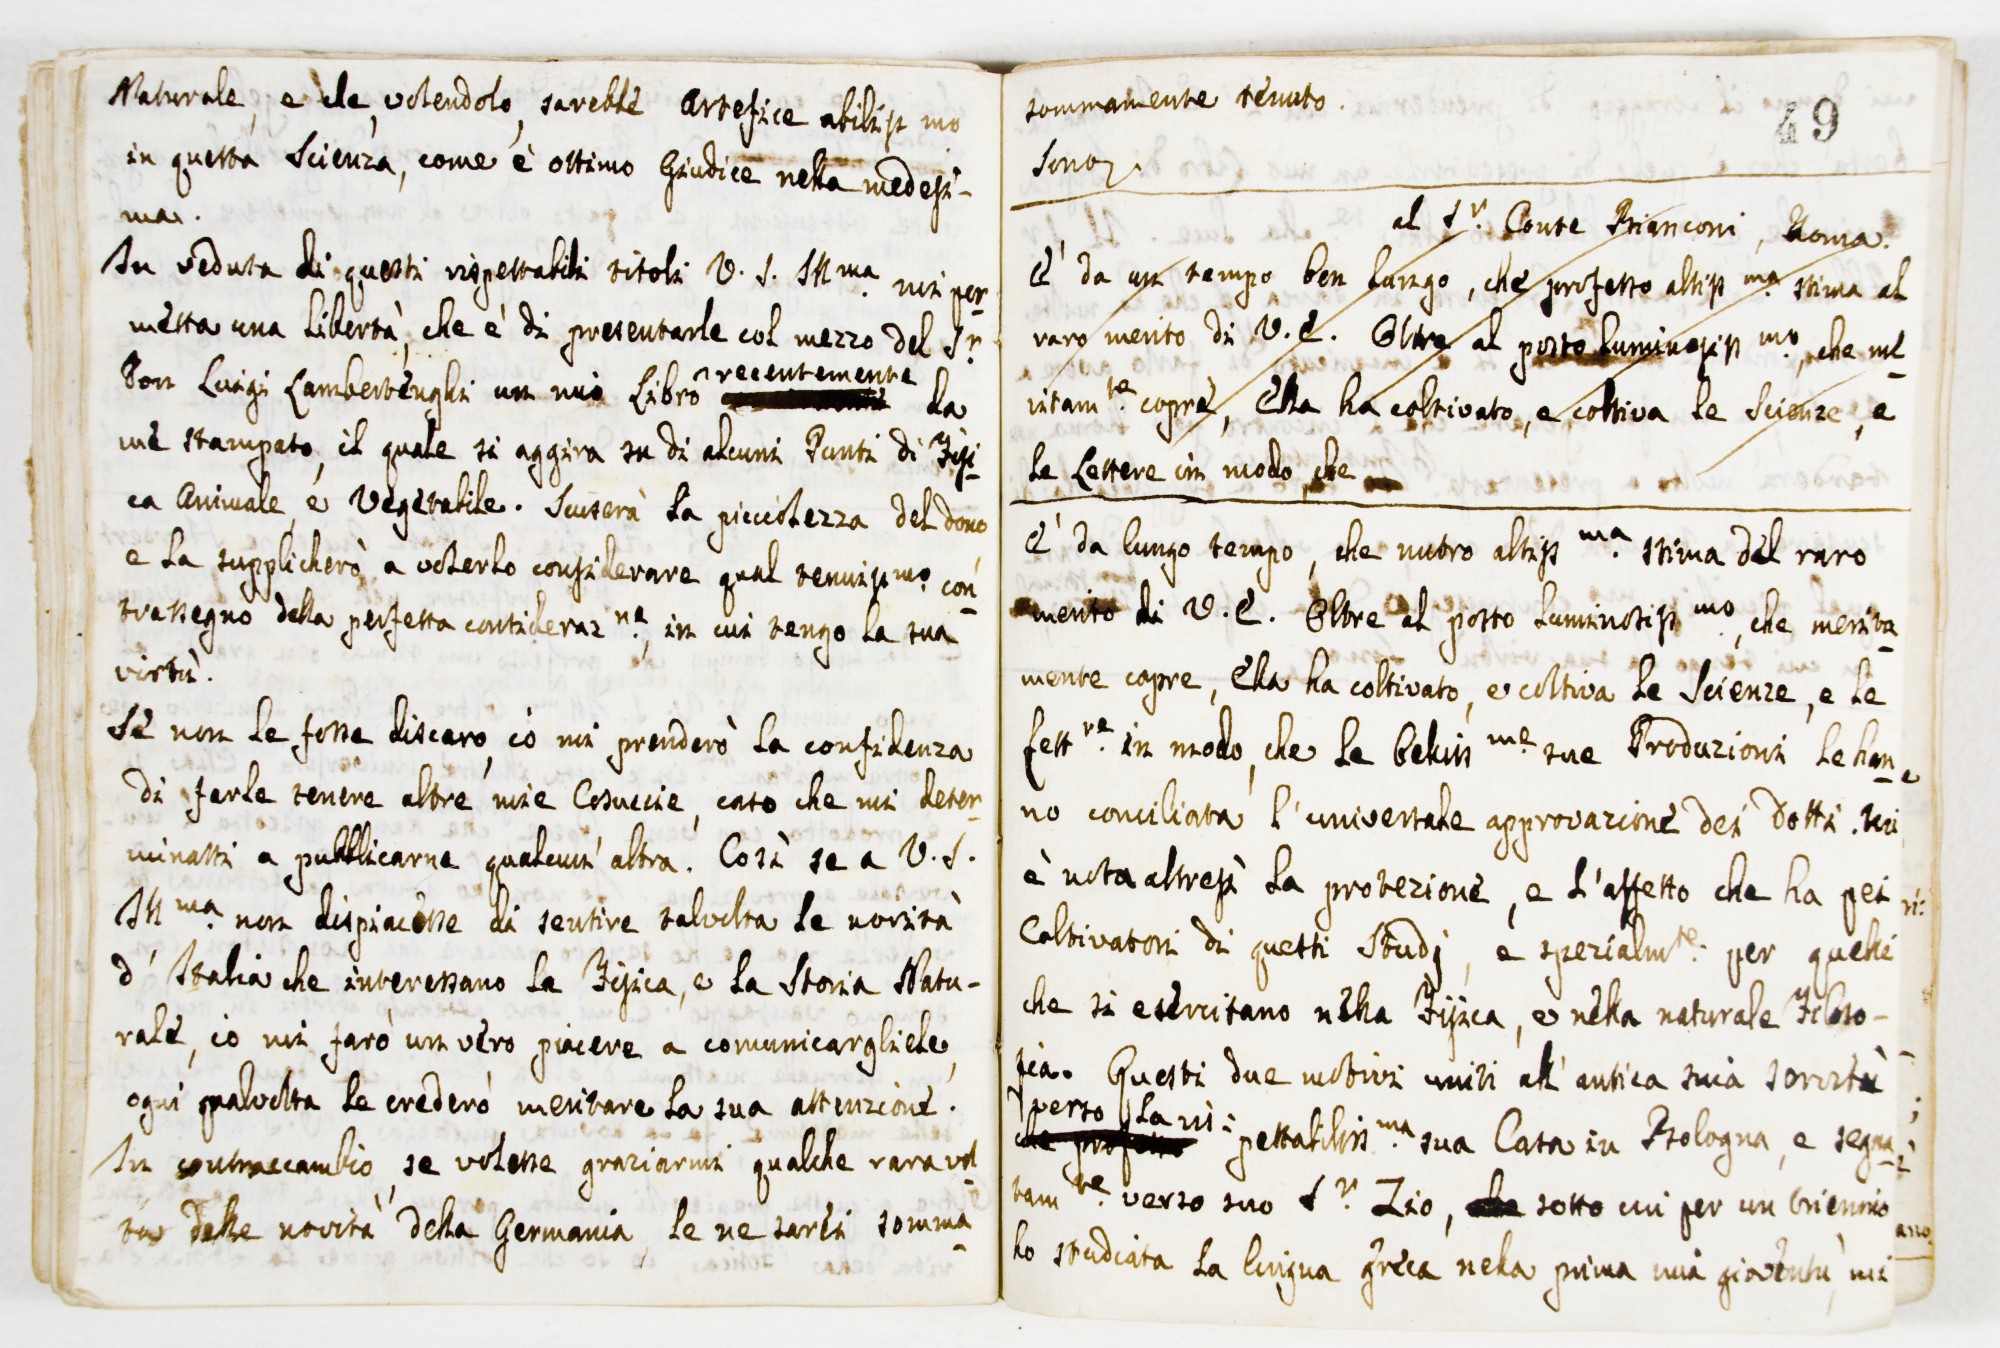 Naturale, e che, volendolo, sarebbe Artefice abiliss mo
in questa Scienza, come è ottimo Giudice nella medesi-
ma.
In veduta di questi rispettabili titoli V. S. Ill ma. mi per-
metta una libertà, che è di presentarle col mezzo del Sr.
Don Luigi Lambertenghi un mio Libro recentemente da
me stampato, il quale si aggira su di alcuni Punti di Fisi-
ca Animale, e Vegetabile. Scuserà la picciolezza del dono
e la supplicherò a volerlo considerare qual tenuiss mo. con-
trassegno della perfetta consideraz ne. in cui tengo la sua
virtù.
Se non le fosse discaro, io mi prenderò la confidenza
di farle tenere altre mie Cosuccie, caso che mi deter-
minassi a pubblicarne qualcun' altra. Così se a V. S.
Ill ma. non dispiacesse di sentire talvolta le novità
d' Italia che interessano la Fisica, e la Storia Natu-
rale, io mi farò un vero piacere a comunicargliele,
ogni qualvolta le crederò meritare la sua attenzione.
In contraccambio, se volesse graziarmi qualche rara vol-
ta delle novità della Germania, le ne sarei somma-
49
sommamente tenuto.
Sono
al Sr. Conte Bianconi, Roma.
E' da un tempo ben lungo, che professo altiss ma. stima al
raro merito di V. E. Oltre al posto luminosiss mo, che me-
ritam te. copre, Ella ha coltivato, e coltiva le Scienze, e
le Lettere in modo, che
E' da lungo tempo, che nutro altiss ma. stima del raro
merito di V. E. Oltre al posto luminosiss mo, che merita-
mente copre, Ella ha coltivato, e coltiva le Scienze, e le
Lett re. in modo, che le beliss me. sue Produzioni le han-
no conciliata l' universale approvazione dei Dotti. Mi
è nota altresì la protezione, e l' affetto che ha pei
Coltivatori di questi Studj, e spezialm te. per quelli
che si esercitano nella Fisica, e nella naturale Filoso-
fia. Questi due motivi uniti all' antica mia servitù
verso la ris-
che professo pettabiliss ma. sua Casa in Bologna, e segna-
tam te. verso suo Sr. Zio, sotto cui per un triennio
ho studiata la lingua greca nella prima mia gioventù, mi